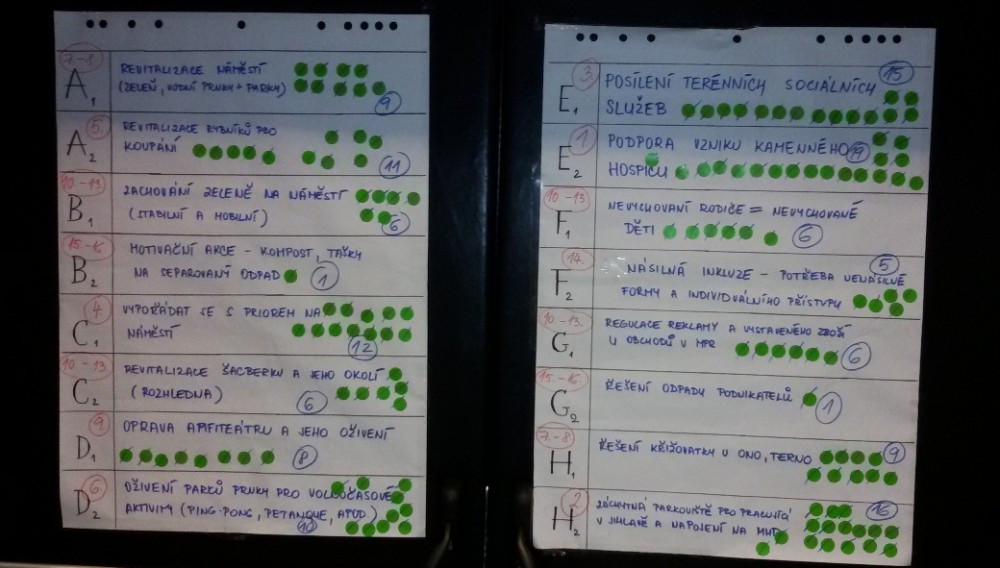 7.-8.
A1
REVITALIZACE NÁMĚSTÍ
(ZELEŇ, VODNÍ PRVKY + PARKY)
9
5.
A2
REVITALIZACE RYBNÍKŮ PRO
KOUPÁNÍ
11
10-13
B1
ZACHOVÁNÍ ZELENĚ NA NÁMĚSTÍ
(STABILNÍ A MOBILNÍ)
6
15.-16.
B2
MOTIVAČNÍ AKCE - KOMPOST, TAŠKY
NA SEPAROVANÝ ODPAD
1
4.
C1
VYPOŘÁDAT SE S PRIOREM NA
NÁMĚSTÍ
12
10-13.
C2
REVITALIZACE ŠACBERKU A JEHO OKOLÍ
(ROZHLEDNA)
6
9.
D1
OPRAVA AMFITEÁTRU A JEHO OŽIVENÍ
8
6.
D2
OŽIVENÍ PARKŮ PRVKY PRO VOLNOČASOVÉ
AKTIVITY (PING-PONG, PETANQUE, APOD)
10
3.
E1
POSÍLENÍ TERÉNNÍCH SOCIÁLNÍCH
SLUŽEB
15
1
E2
PODPORA VZNIKU KAMENNÉHO
HOSPICU
19
10-13
F1
NEVYCHOVANÍ RODIČE = NEVYCHOVANÉ
DĚTI
6
14.
F2
NÁSILNÁ INKLUZE - POTŘEBA NENÁSILNÉ
FORMY A INDIVIDUÁLNÍHO PŘÍSTUPU
5
10-13.
G1
REGULACE REKLAMY A VYSTAVENÉHO ZBOŽÍ
U OBCHODŮ V MPR
6
15.-16.
G2
ŘEŠENÍ ODPADY PODNIKATELŮ
1
7.-8
H1
ŘEŠENÍ KŘIŽOVATKY U ONO, TERNO
9
2
H2
ZÁCHYTNÁ PARKOVIŠTĚ PRO PRACUJÍCÍ
V JIHLAVĚ A NAPOJENÍ NA MHD
16